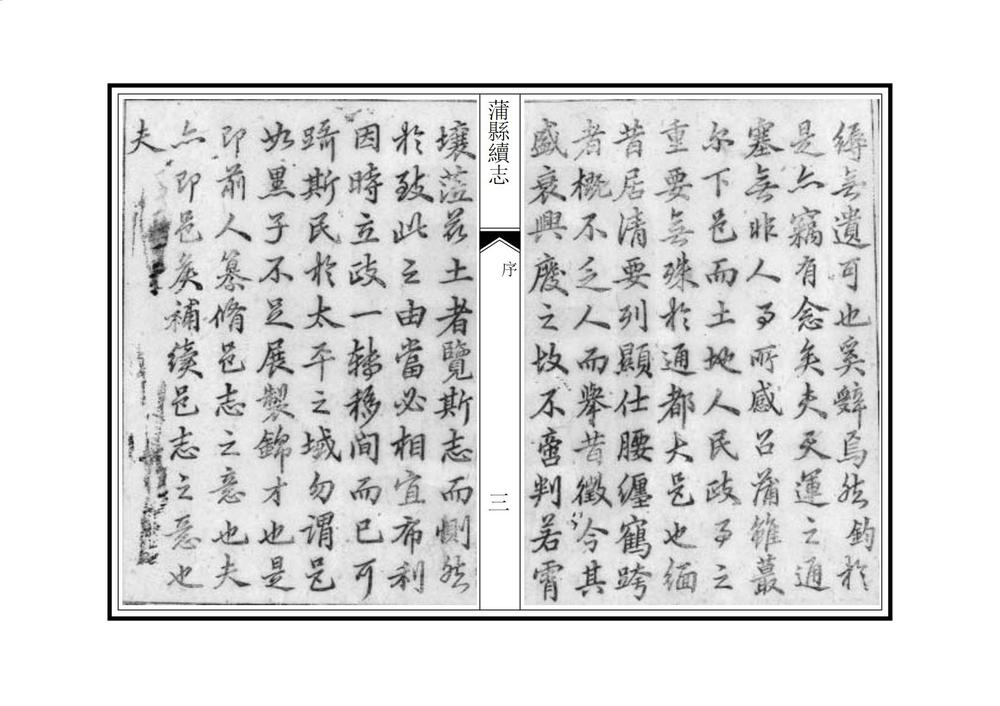 縟無遺可也奚辭焉然鈞於
是亦竊有念矣夫天運之通
塞無非人事所感召蒲雖蕞
尔下邑而土地人民政事之
重要無殊於通都大邑也緬
昔居清要列顯仕腰纏鶴跨
者概不乏人而舉昔徵今其
盛衰興廢之故不啻判若霄
蒲縣續志
序
三
壤蒞茲土者覽斯志而惻然
於致此之由當必相宜布利
因時立政一轉移間而已可
躋斯民於太平之域勿謂邑
如黑子不足展製錦才也是
即前人纂脩邑志之意也夫
亦即邑矦補續邑志之意也
夫